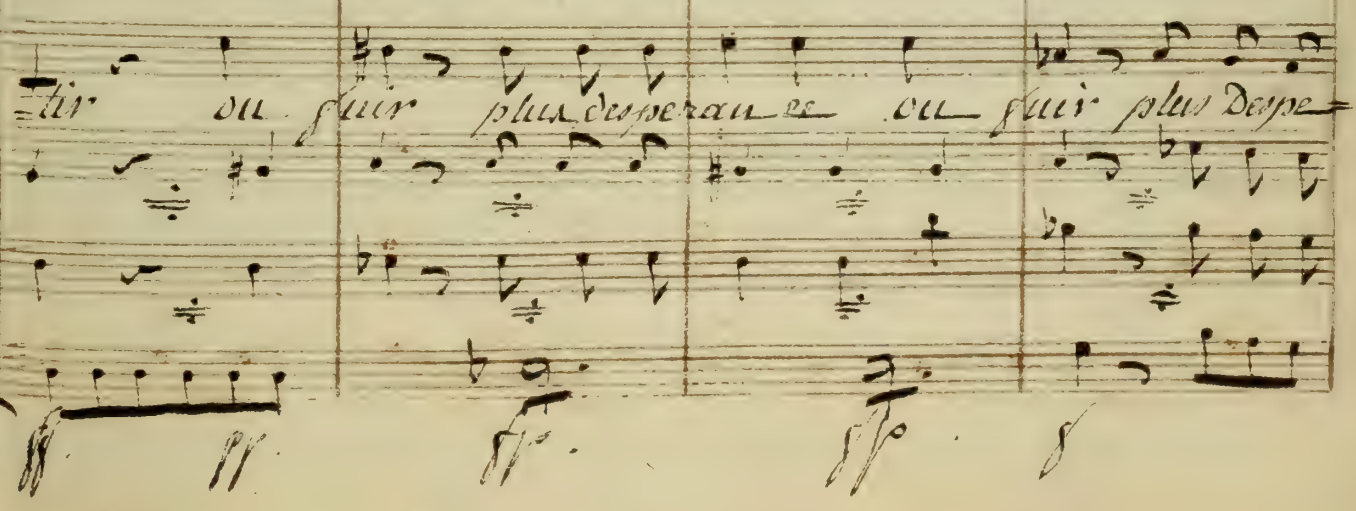 =tir ou fuir plus desperan ce ou fuir plus Despe=
ff. pp. sfp. sfp. f